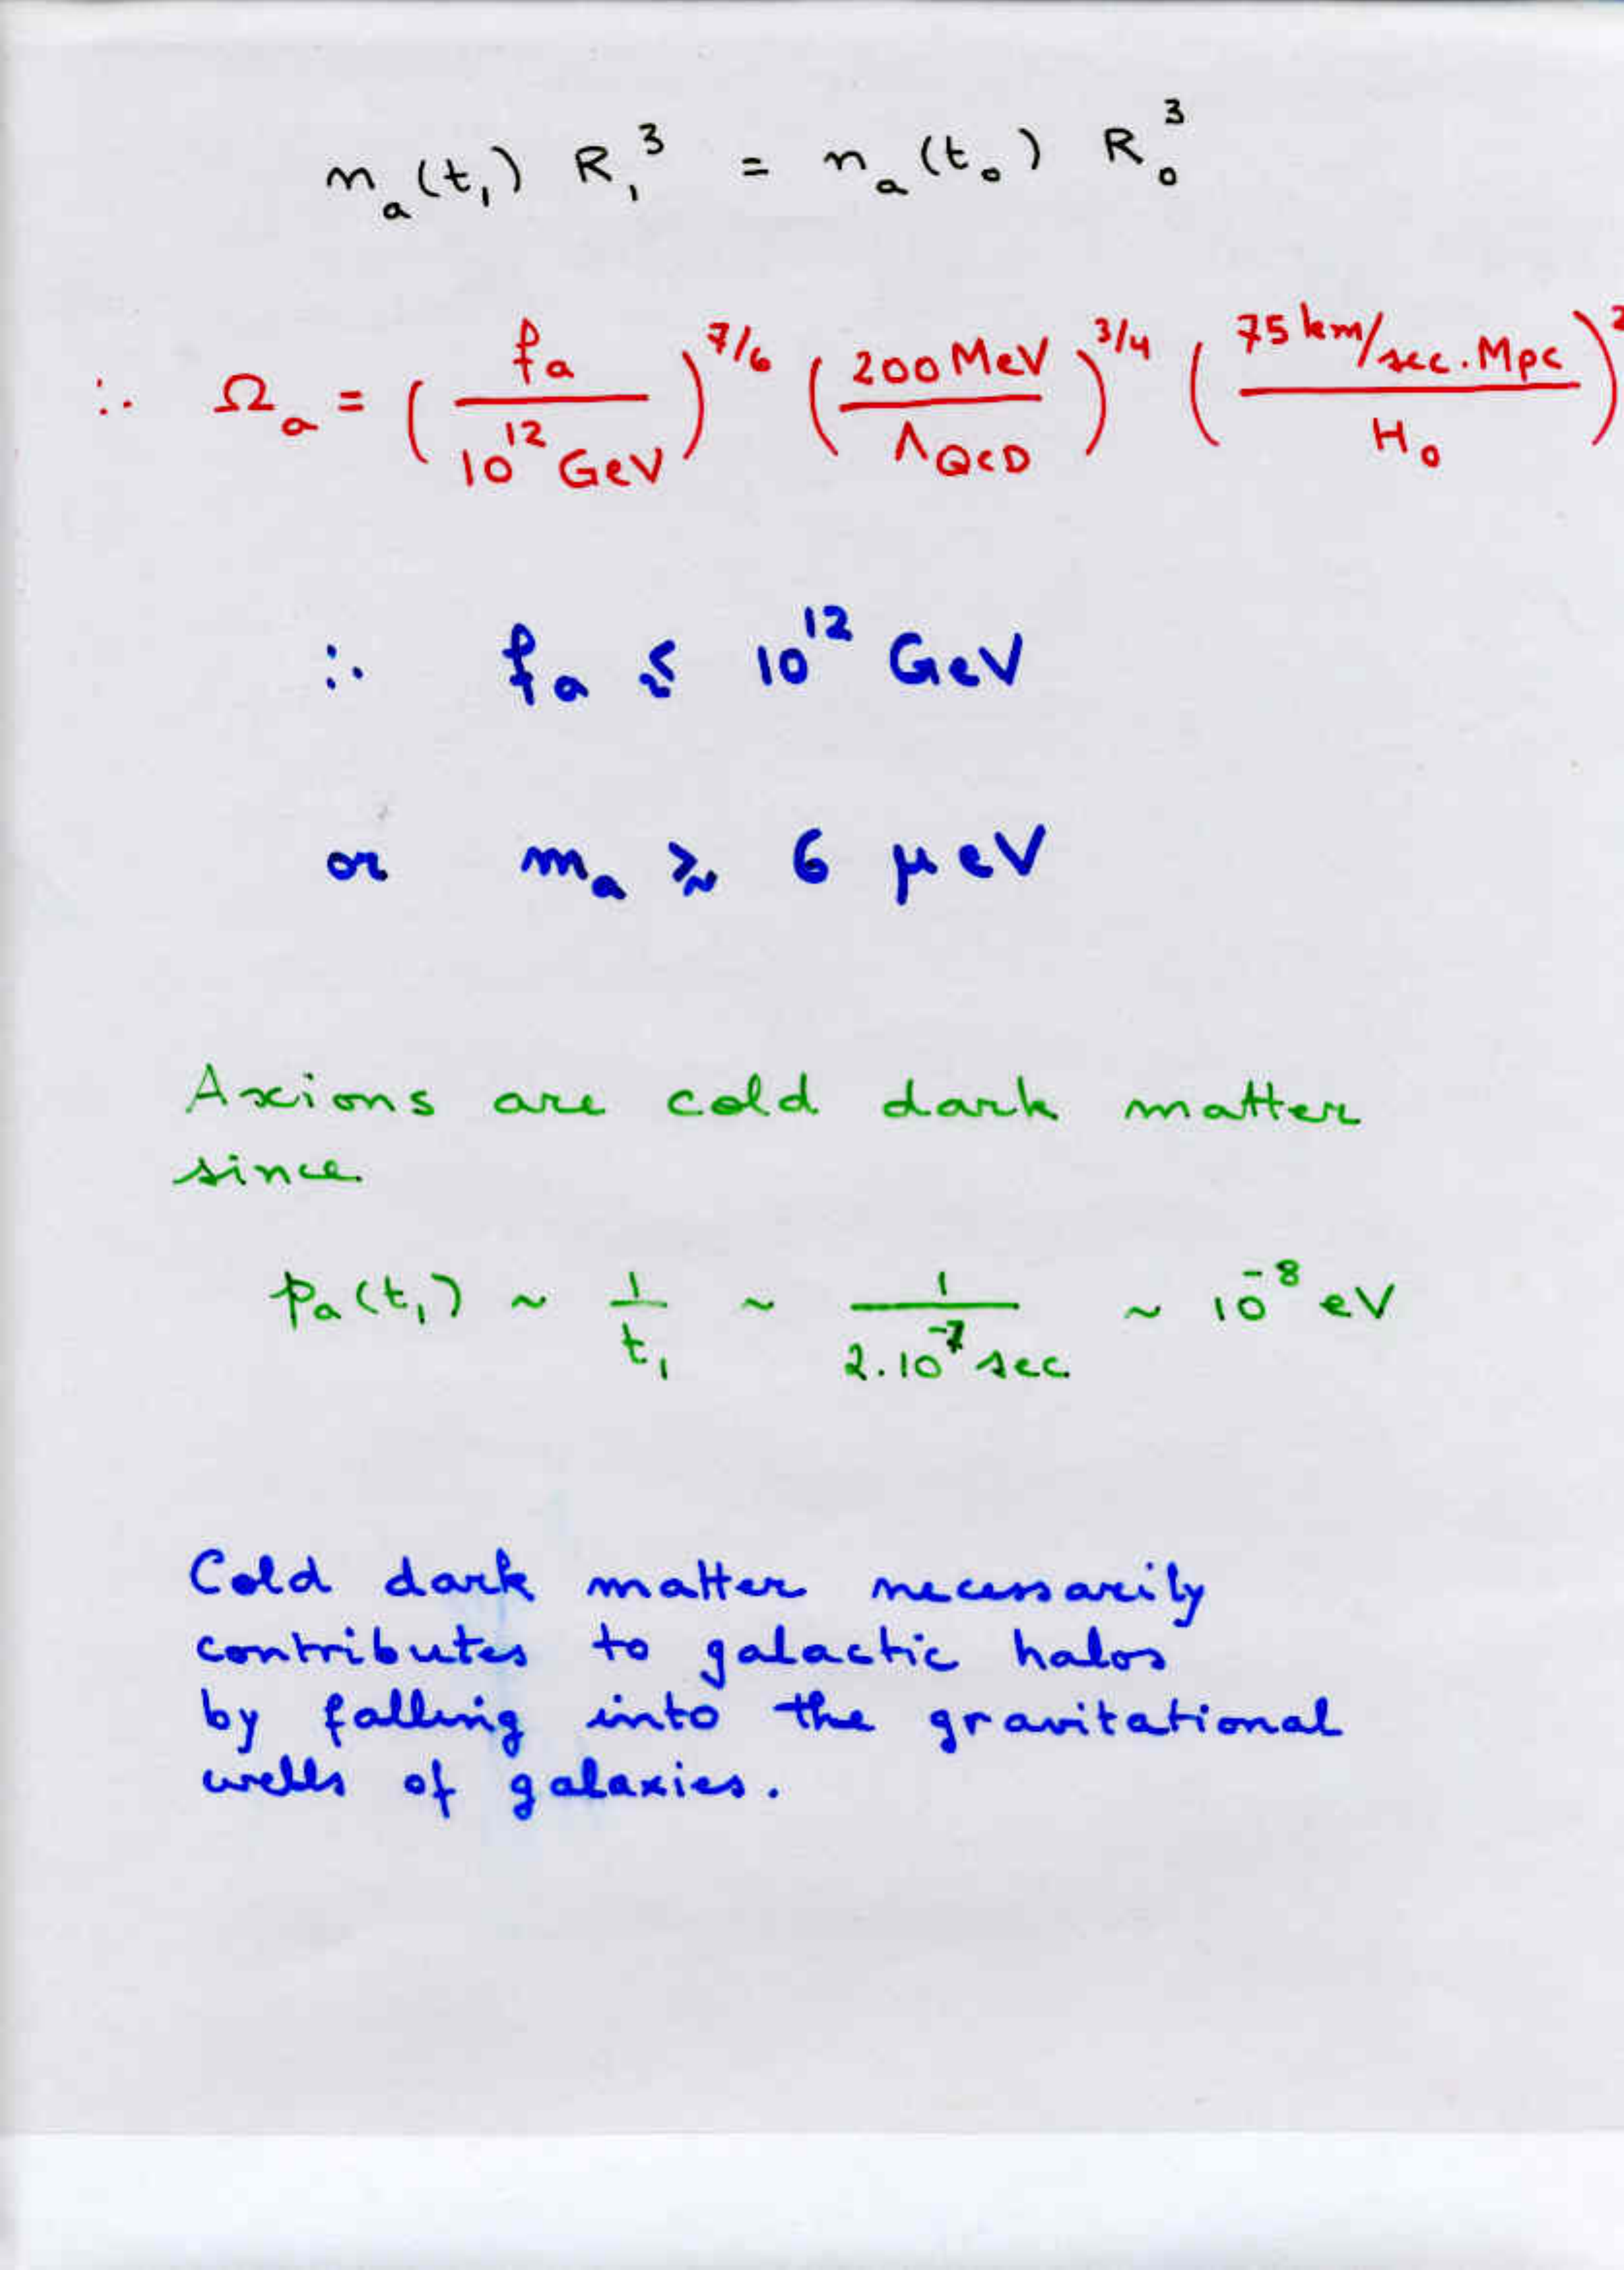 n_a(t_1) R_1^3 = n_a(t_0) R_0^3
∴ Ω_a = (f_a / 10^12 GeV)^7/6 (200 MeV / Λ_QCD)^3/4 (75 km/sec.Mpc / H_0)^2
∴ f_a ≲ 10^12 GeV
or m_a ≳ 6 μeV
Axions are cold dark matter
since
p_a(t_1) ~ 1/t_1 ~ 1/2.10^-7 sec ~ 10^-8 eV
Cold dark matter necessarily
contributes to galactic halos
by falling into the gravitational
wells of galaxies.